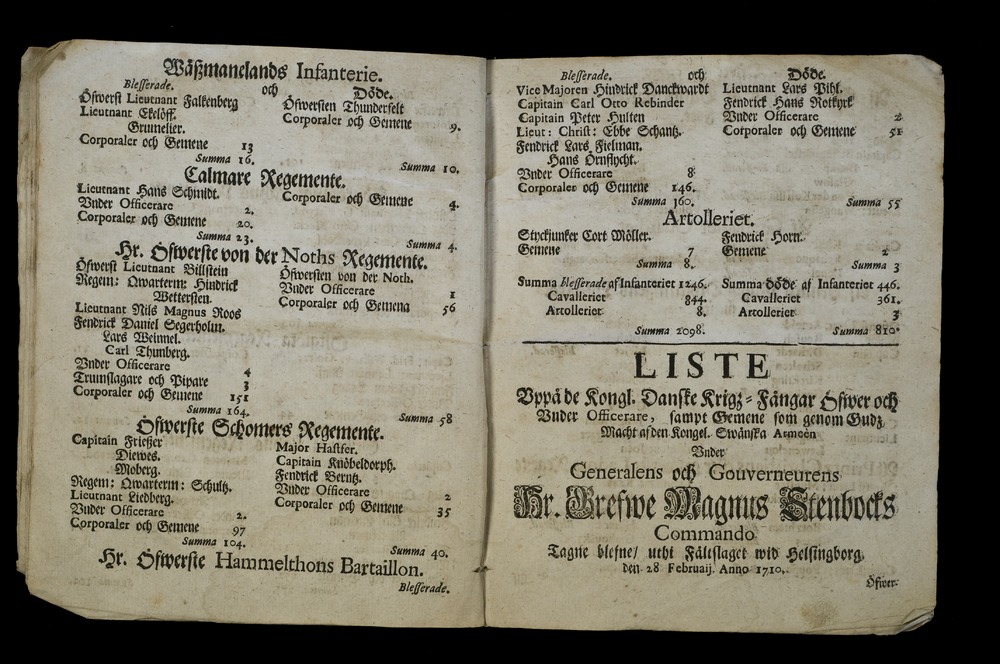 Wäßmanelands Infanterie.
Blesserade. och Döde.
Öfwerst Lieutnant Falkenberg
Lieutnant Ekelöff.
Grunnelier.
Corporaler och Gemene 13
Summa 16.
Öfwersten Thunderfelt
Corporaler och Gemene 9.
Summa 10.
Calmare Regemente.
Lieutnant Hans Schmidt.
Vnder Officerare 2.
Corporaler och Gemene 20.
Summa 23.
Corporaler och Gemene 4.
Summa 4.
Hr. Öfwerste von der Noths Regemente.
Öfwerst Lieutnant Billstein
Regem: Qwarterm: Hindrick
Wettersten.
Lieutnant Nils Magnus Roos
Fendrick Daniel Segerholm.
Lars Weinnel.
Carl Thunberg.
Vnder Officerare 4
Trumslagare och Pipare 3
Corporaler och Gemene 151
Summa 164.
Öfwersten von der Noth.
Vnder Officerare 1
Corporaler och Gemena 56
Summa 58
Öfwerste Schomers Regemente.
Capitain Frießer
Diewes.
Moberg.
Regem: Qwarterm: Schultz.
Lieutnant Liedberg.
Vnder Officerare 2.
Corporaler och Gemene 97
Summa 104.
Major Hastfer.
Capitain Knöbeldorph.
Fendrick Berntz.
Vnder Officerare 2
Corporaler och Gemene 35
Summa 40.
Hr. Öfwerste Hammelthons Bartaillon.
Blesserade.
Blesserade. och Döde.
Vice Majoren Hindrick Danckwardt
Capitain Carl Otto Rebinder
Capitain Peter Hulten
Lieut: Christ: Ebbe Schantz.
Fendrick Lars Fielman.
Hans Örnflycht.
Vnder Officerare 8
Corporaler och Gemene 146.
Summa 160.
Lieutnant Lars Pihl.
Fendrick Hans Rotkyrk
Vnder Officerare 2
Corporaler och Gemene 51
Summa 55
Artolleriet.
Styckjunker Cort Möller.
Gemene 7
Summa 8.
Fendrick Horn.
Gemene 2
Summa 3
Summa blesserade af Infanteriet 1246.
Cavalleriet 844.
Artolleriet 8.
Summa 2098.
Summa döde af Infanteriet 446.
Cavalleriet 361.
Artolleriet 3
Summa 810
LISTE
Uppå de Kongl. Danske Krigz-Fångar Öfwer och
Vnder Officerare, sampt Gemene som genom Gudz
Macht af den Kongel. Swänska Armeén
Vnder
Generalens och Gouverneurens
Hr. Grefwe Magnus Stenbocks
Commando
Tagne blefne/ uthi Fältslaget wid Helsingborg.
den 28 Februaij. Anno 1710.
Öfwer-